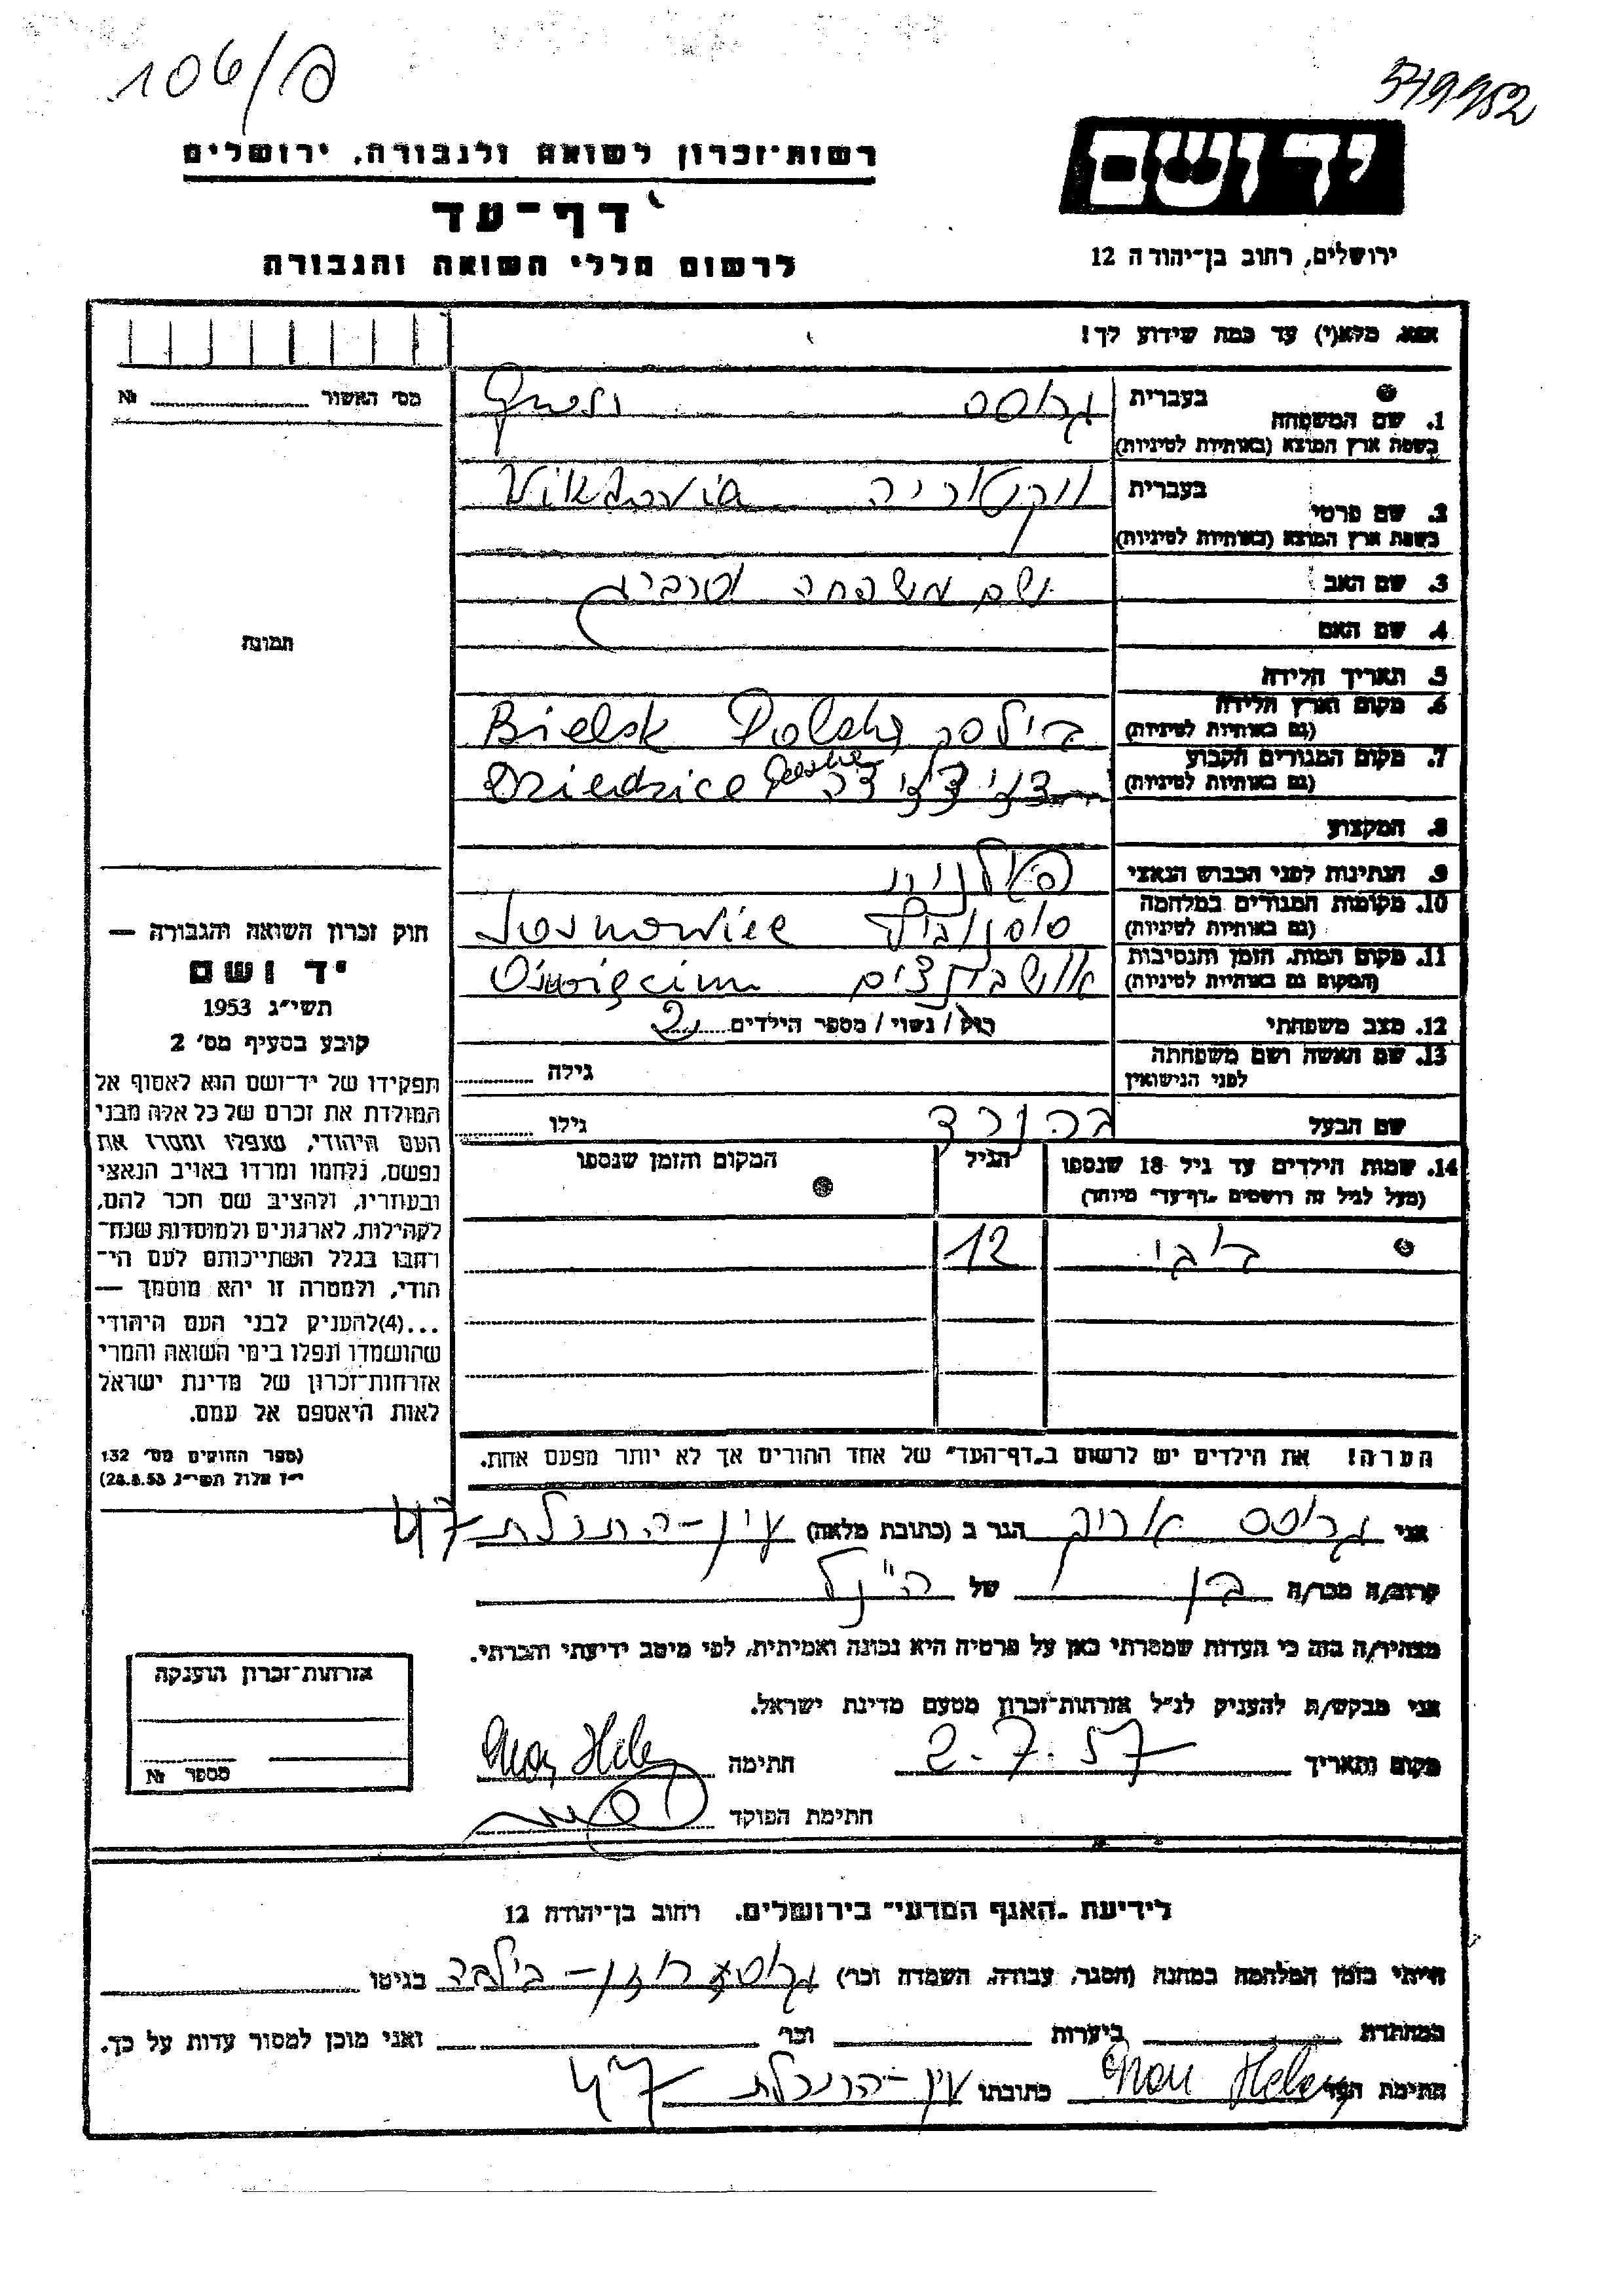 106/
549952
יד ושם
רשות־זכרון לשואה ולגבורה, ירושלים
דף־עד
לרשום חללי השואה והגבורה
ירושלים, רחוב בן־יהודה 12
אנא, מלא(י) עד כמה שידוע לך!
מס' האשור № 
בעברית גרוסס
1. שם המשפחה
בשפת ארץ המוצא (באותיות לטיניות)
בעברית ויקטוריה Viktoria
2. שם פרטי
בשפת ארץ המוצא (באותיות לטיניות)
3. שם האב שם משפחה
4. שם האם
5. תאריך הלידה
6. מקום וארץ הלידה בילסק Bielsk Polska
(גם באותיות לטיניות)
7. מקום המגורים הקבוע Dziedzice
(גם באותיות לטיניות)
8. המקצוע
9. הנתינות לפני הכבוש הנאצי פולנית
10. מקומות המגורים במלחמה Sosnowiec
(גם באותיות לטיניות)
11. מקום המות, הזמן והנסיבות Oświęcim
(המקום גם באותיות לטיניות)
12. מצב משפחתי רווק / נשוי / מספר הילדים 2
13. שם האשה ושם משפחתה גילה
לפני הנישואין
שם הבעל ברנרד גילו
14. שמות הילדים עד גיל 18 שנספו הגיל המקום והזמן שנספו
(מעל לגיל זה רושמים „דף־עד" מיוחד)
12
הערה! את הילדים יש לרשום ב„דף־העד" של אחד ההורים אך לא יותר מפעם אחת.
תמונה
חוק זכרון השואה והגבורה —
יד ושם
תשי"ג 1953
קובע בסעיף מס' 2
תפקידו של יד־ושם הוא לאסוף אל
המולדת את זכרם של כל אלה מבני
העם היהודי, שנפלו ומסרו את
נפשם, נלחמו ומרדו באויב הנאצי
ובעוזריו, ולהציב שם וזכר להם,
לקהילות, לארגונים ולמוסדות שנח־
רבו בגלל השתייכותם לעם הי־
הודי, ולמטרה זו יהא מוסמך —
...(4) להעניק לבני העם היהודי
שהושמדו ונפלו בימי השואה והמרי
אזרחות־זכרון של מדינת ישראל
לאות היאספם אל עמם.
(ספר החוקים מס' 132
י"ז אלול תשי"ג 28.8.53)
אני גרוסס אריק הגר ב (כתובת מלאה) עין-התכלת 47
קרוב/ה מכר/ה בן של הנ"ל
מצהיר/ה בזה כי העדות שמסרתי כאן על פרטיה היא נכונה ואמיתית, לפי מיטב ידיעתי והכרתי.
אני מבקש/ת להעניק לנ"ל אזרחות־זכרון מטעם מדינת ישראל.
מקום ותאריך 2.7.57 חתימה
חתימת הפוקד
אזרחות־זכרון הוענקה
מספר №
לידיעת „האגף המדעי" בירושלים, רחוב בן־יהודה 12
הייתי בזמן המלחמה במחנה (הסגר, עבודה, השמדה וכו') בגיטו
במחתרת ביערות וכו' ואני מוכן למסור עדות על כך.
חתימת העד כתובתו עין-התכלת 47